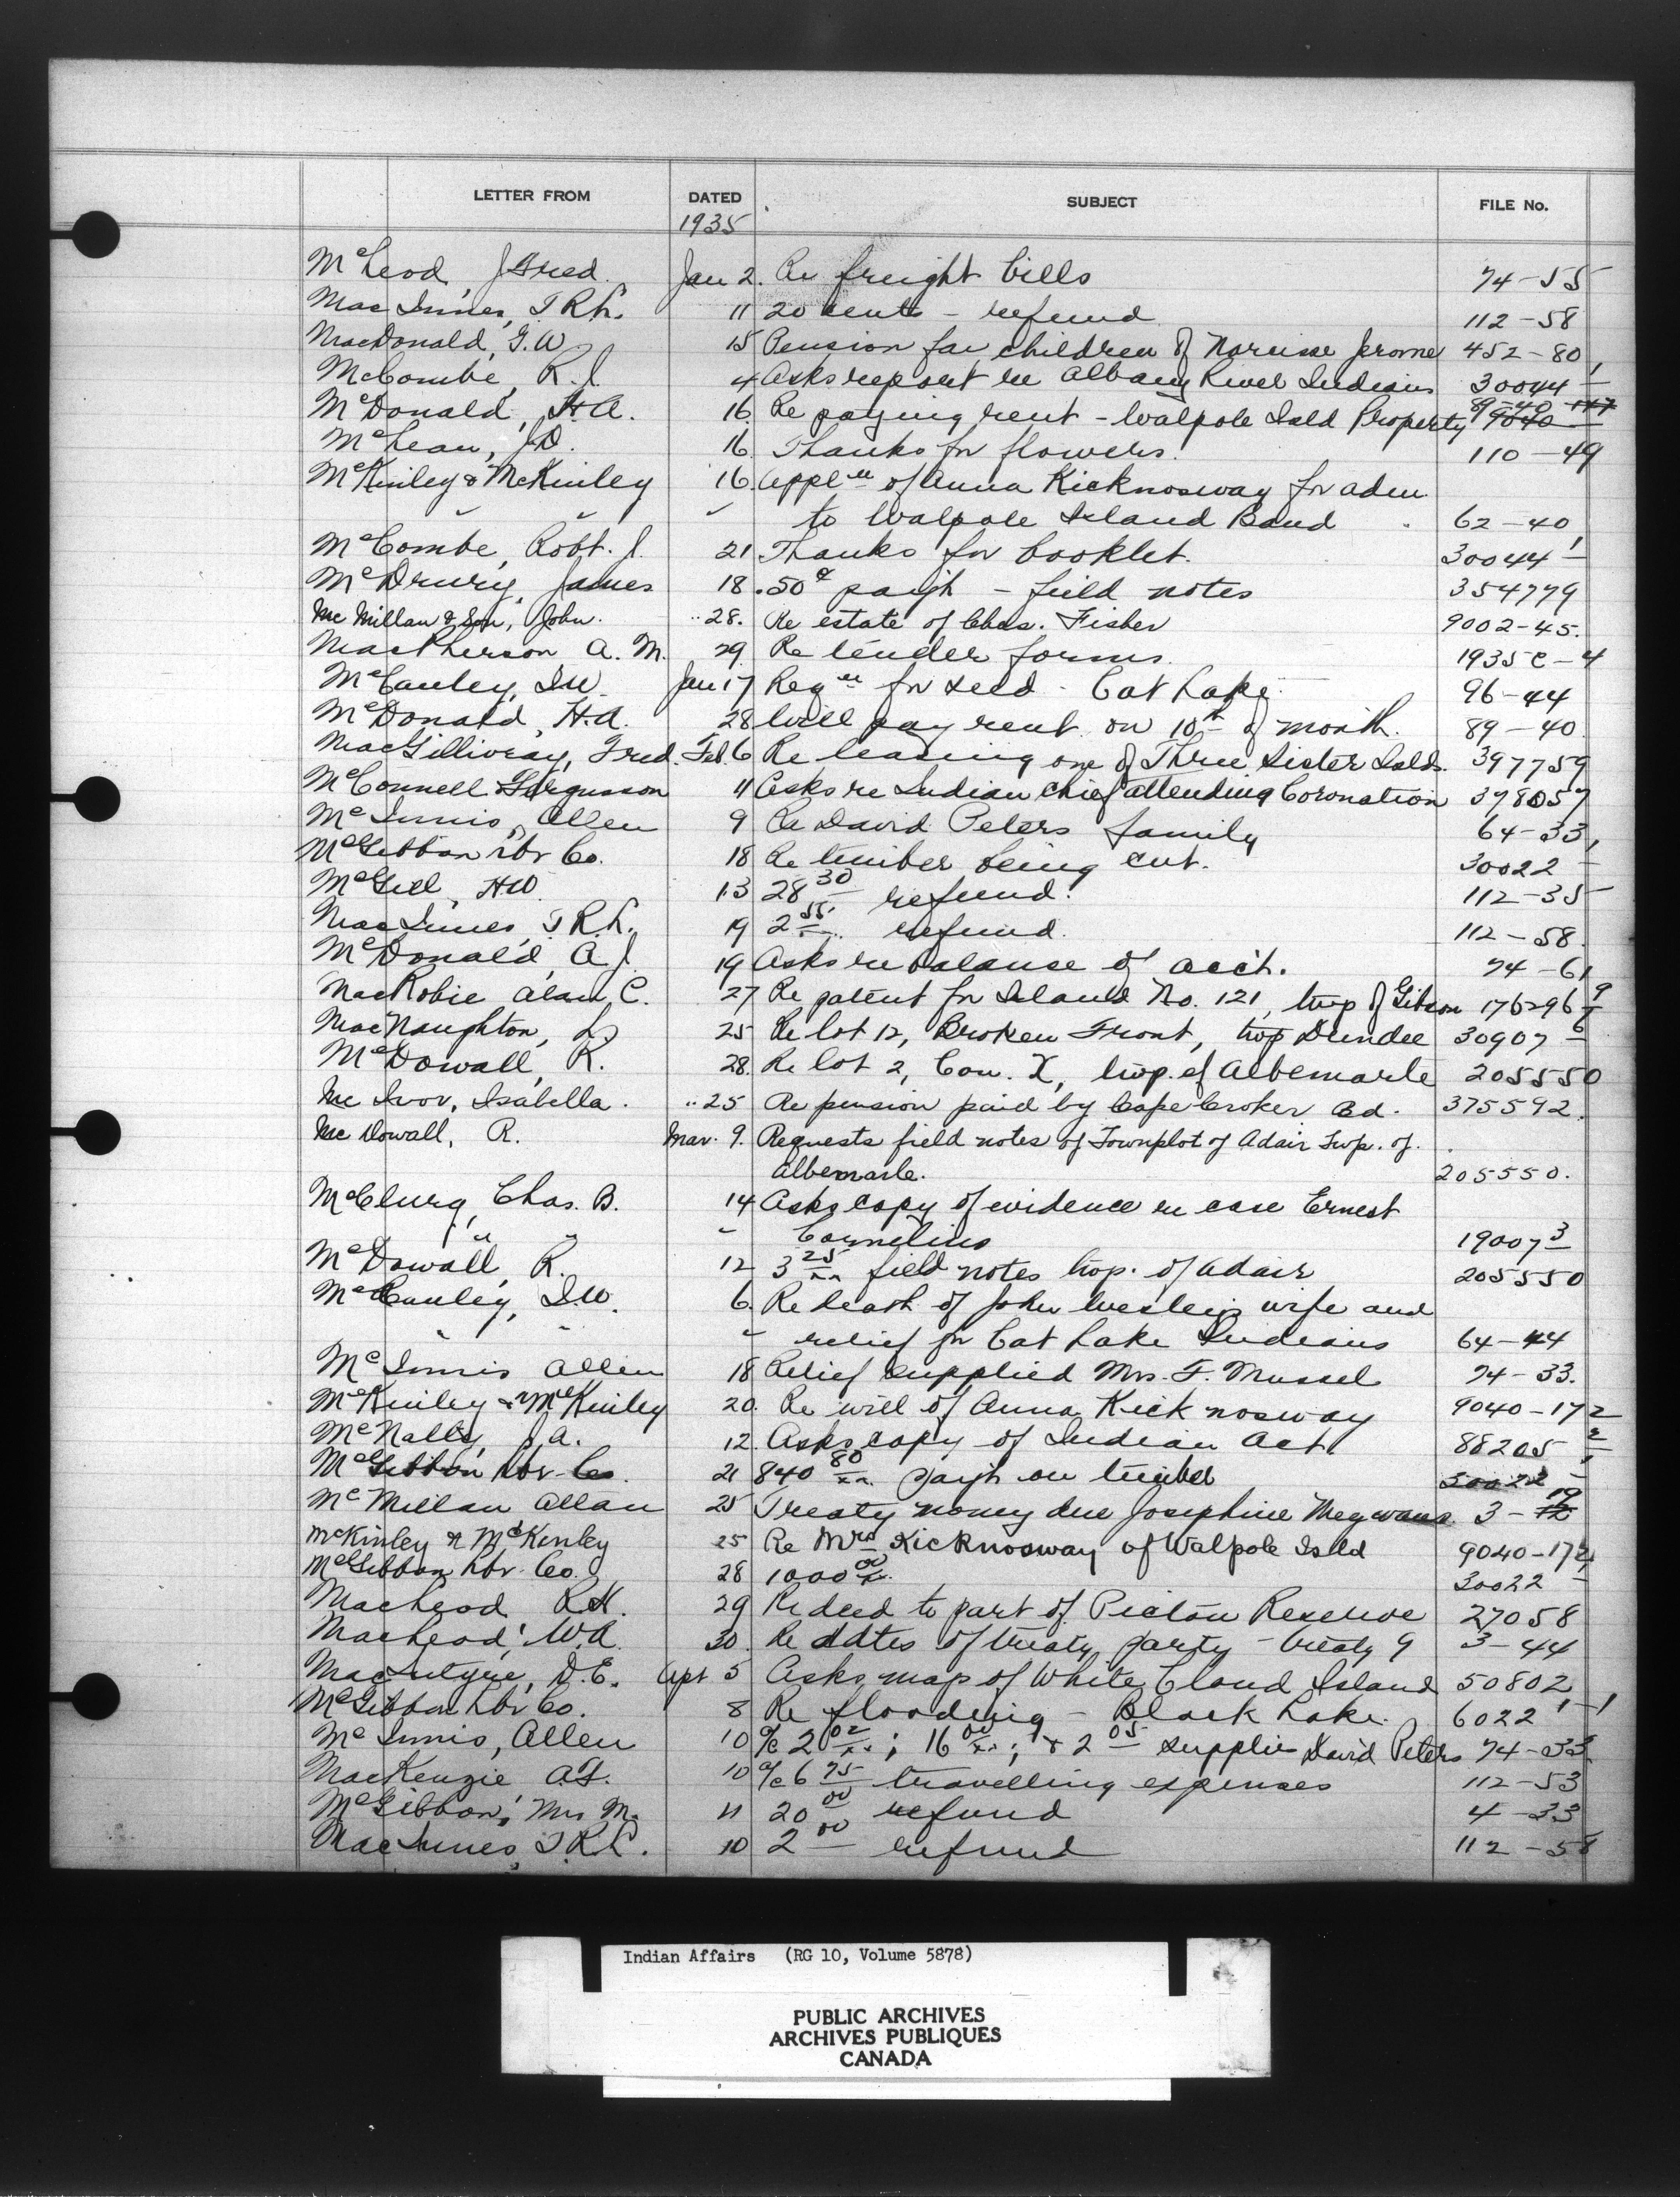 LETTER FROM DATED SUBJECT FILE No.
1935
McLeod, J Fred. Jan 2. Re freight bills 74-55
MacInnes, T.R.L. 11 20 cents - refund 112-58
MacDonald, G.W. 15 Pension for children of Narcisse Jerome 452-80
McCombe, R.J. 4 Asks report re Albany River Indians 30044-1
McDonald, H.A. 16. Re paying rent - Walpole Isld Property 89-40
McLean, J.D. 16. Thanks for flowers. 110-49
McKinley & McKinley 16. Applen of Anna Kicknosway for adm.
" " " to Walpole Island Band 62-40
McCombe, Robt. J. 21 Thanks for booklet. 30044-1
McDrury, James 18 .50c paym't - field notes 354779
McMillan & Son, John. " 28. Re estate of Chas. Fisher 9002-45.
MacPherson A. M. 29. Re tender forms. 1935 C-4
McCauley, I.W. Jan 17 Reqn for seed - Cat Lake 96-44
McDonald, H.A. 28 Will pay rent on 10th of month. 89-40
MacGillivray, Fred. Feb. 6 Re leasing one of Three Sister Islds. 397759
McConnell Fergusson 11 Asks re Indian Chief attending Coronation 398057
McInnis, Allen 9 Re David Peters family 64-33
McGibbon Lbr Co. 18 Re timber being cut. 30022-1
McGill, H.W. 13 28 30 refund. 112-35
MacInnes, T.R.L. 19 2 55 xx refund. 112-58.
McDonald, A.J. 19 Asks re balance of acc't. 74-61
MacRobie Alan C. 27 Re patent for Island No. 121, twp of Gibson 176296-9
MacNaughton, L. 25 Re lot 12, Broken Front, twp Dundee 30907-6
McDowall, R. 28. Re lot 2, Con. X, twp. of Albemarle 205550
McIvor, Isabella. " 25 Re pension paid by Cape Croker Bd. 375592.
McDowall, R. Mar. 9. Requests field notes of Townplot of Adair Twp. of
Albemarle. 205550.
McClurg, Chas. B. 14 Asks copy of evidence in case Ernest
" " " Cornelius 19007-3
McDowall, R. 12 3 25 xx field notes twp. of Adair 205550
McCauley, I.W. 6. Re death of John Wesley's wife and
" " " relief for Cat Lake Indians 64-44
McInnis Allen 18 Relief supplied Mrs. F. Mussel 74-33.
McKinley & McKinley 20. Re will of Anna Kicknosway 9040-172
McNally, J.A. 12. Asks copy of Indian Act 88205-2
McGibbon Lbr Co. 21 840 80 xx paym't on timber 30022-1
McMillan Allan 25 Treaty money due Josephine 3-19
McKinley & McKinley 25 Re Mrs Kicknosway of Walpole Isld 9040-172
McGibbon Lbr. Co. 28 1000 00 xx. 30022-1
MacLeod R.K. 29 Re deed to part of Pictou Reserve 27058
MacLeod, W.A. 30. Re dates of treaty party - Treaty 9 3-44
MacIntyre, D.E. Apr 5 Asks map of White Cloud Island 50802
McGibbon Lbr Co. 8 Re flooding - Black Lake. 6022-1-1
McInnis, Allen 10 a/c 2 02 xx; 16 00 xx; & 2 05 supplies David Peters 74-33
MacKenzie A.F. 10 a/c 6 75 travelling expenses 112-53
McGibbon, Mrs. M. 11 20 00 refund 4-33
MacInnes, T.R.L. 10 2 00 refund 112-58
Indian Affairs (RG 10, Volume 5878)
PUBLIC ARCHIVES
ARCHIVES PUBLIQUES
CANADA